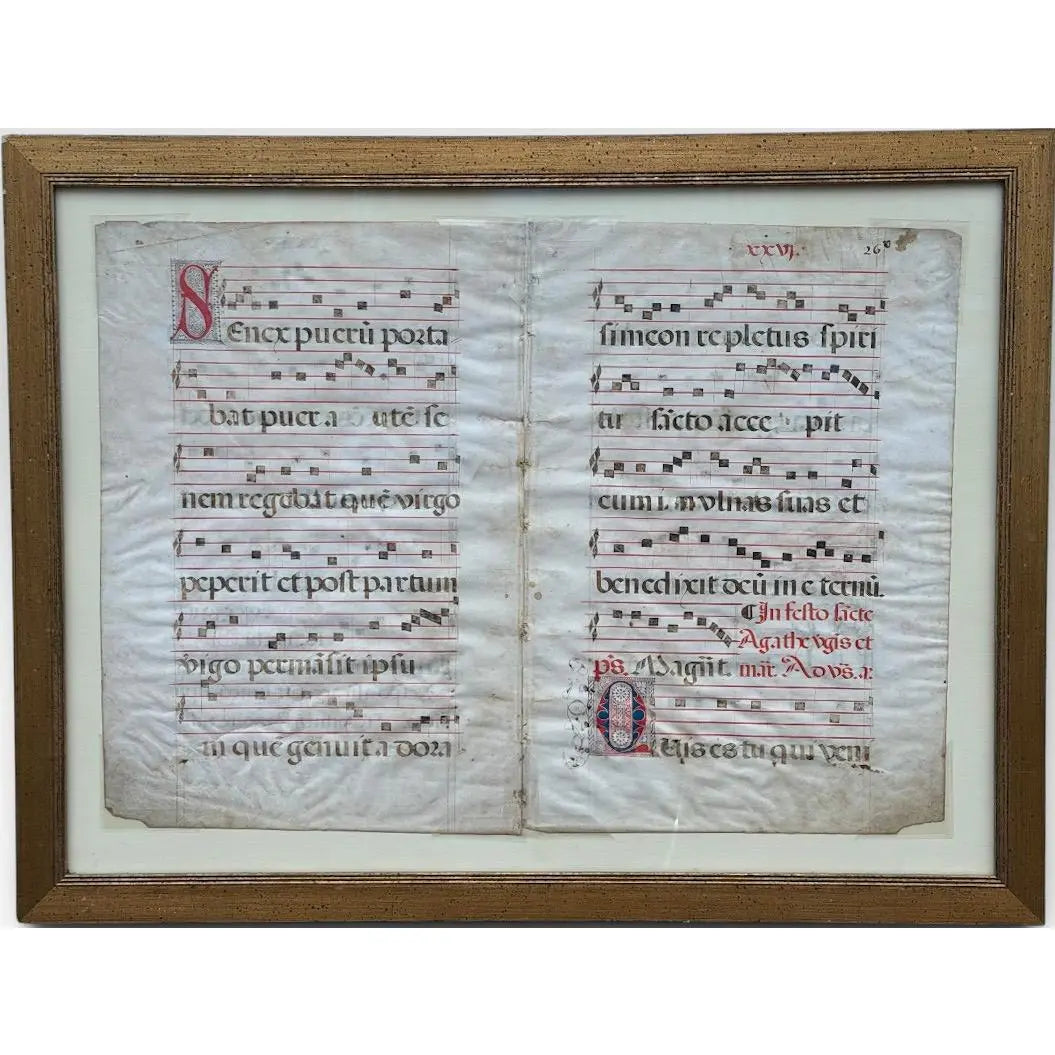 Senex puerū porta
bat puer a utē se
nem regebat quē virgo
peperit et post partum
virgo permāsit ipsū
in quē genuit adora
xxvj. 26
simeon repletus spiri
tu sācto acce pit
eum in vlnas suas et
benedixit deū in eternū.
In festo sācte
Agathe vgīs et
ps. Magnīt. mār. Ad vs̄. a:
Quis es tu qui veni